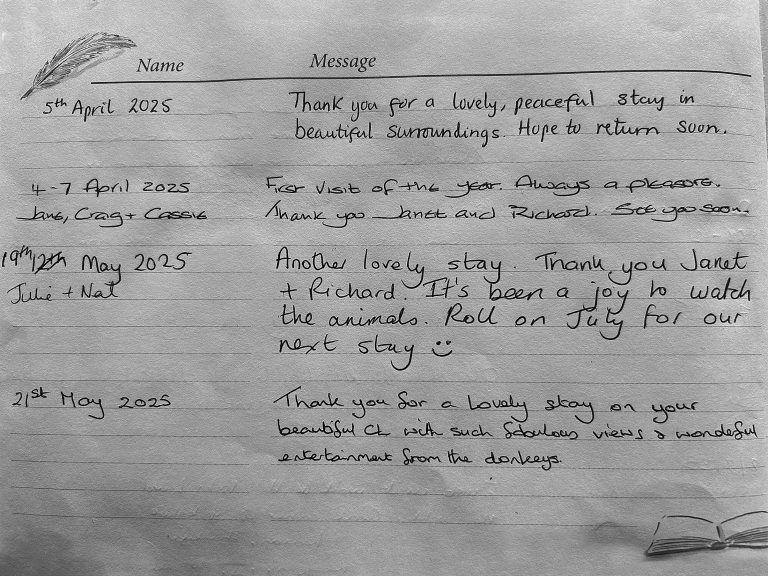 Name Message
5th April 2025 Thank you for a lovely, peaceful stay in
beautiful surroundings. Hope to return soon.
4-7 April 2025 First visit of the year. Always a pleasure.
Jane, Craig + Cassie Thank you Janet and Richard. See you soon.
19th 12th May 2025 Another lovely stay. Thank you Janet
Julie + Nat + Richard. It's been a joy to watch
the animals. Roll on July for our
next stay
21st May 2025 Thank you for a lovely stay on your
beautiful CL with such fabulous views & wonderful
entertainment from the donkeys.